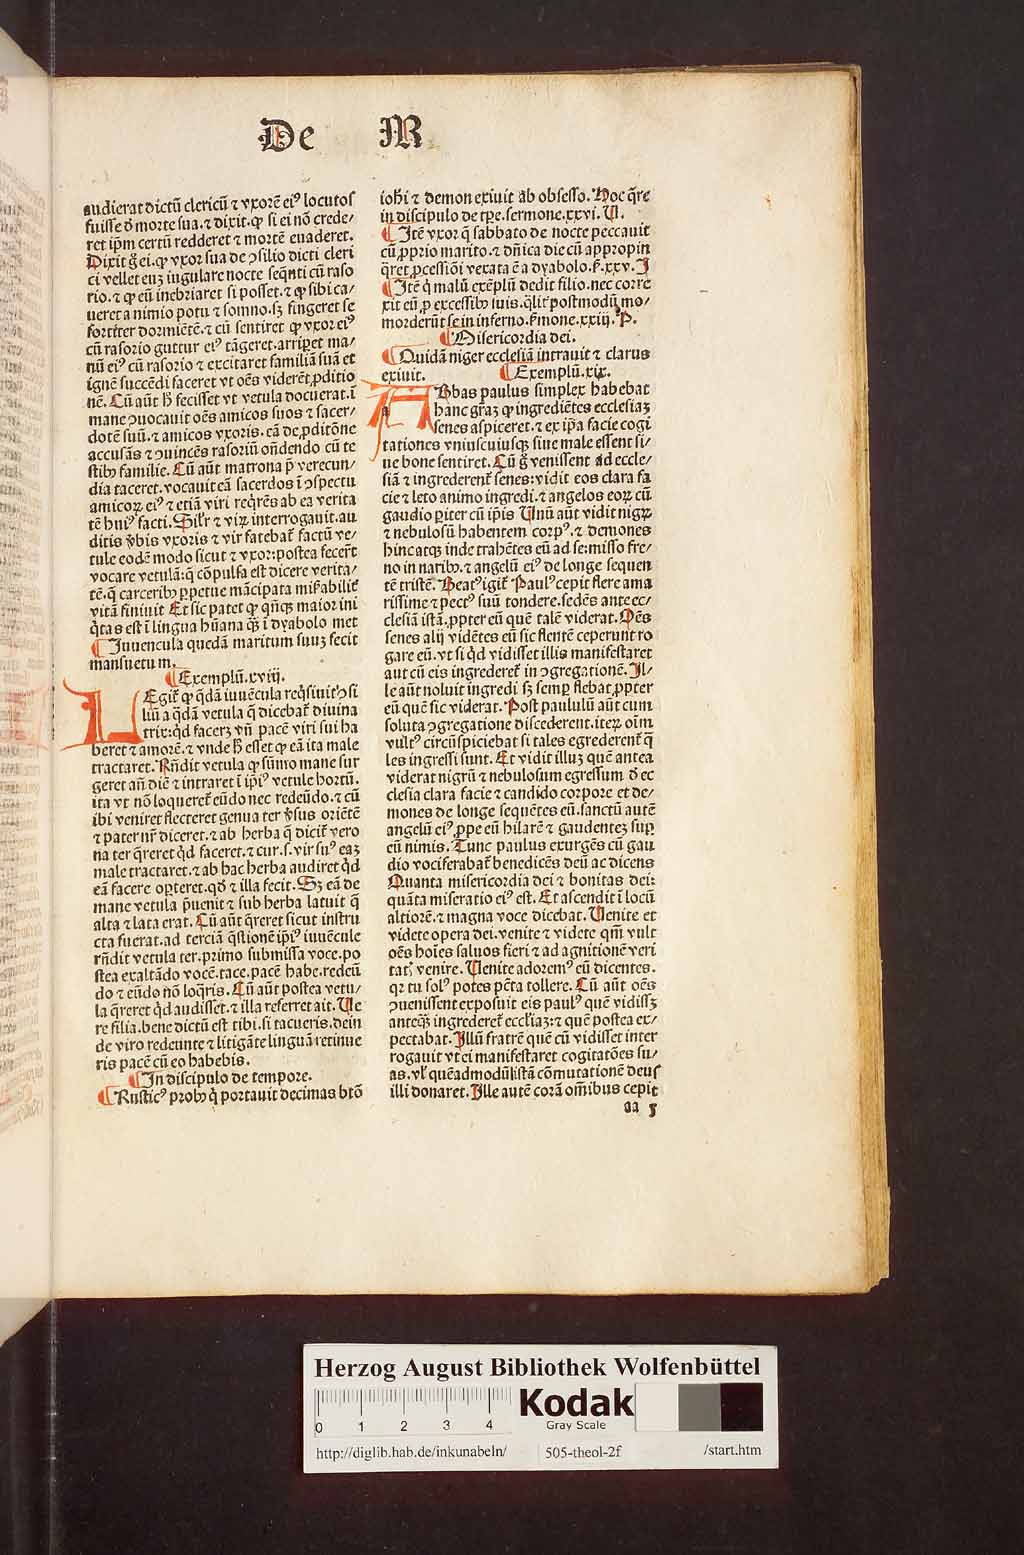 De M
audierat dictū clericū ⁊ vxorē eiꝰ locutos
fuisse d̕ morte sua. ⁊ dixit. ꝙ si ei nō crede/
ret ip̄m certū redderet ⁊ mortē euaderet.
Dixit g̊ ei. ꝙ vxor sua de ꝯsilio dicti cleri
ci vellet euꝫ iugulare nocte seq̄nti cū raso
rio. ⁊ ꝙ eū inebriaret si posset. ⁊ ꝙ sibi ca/
ueret a nimio potu ⁊ somno. sꝫ fingeret se
fortiter dormiētē. ⁊ cū sentiret ꝙ vxor eiꝰ
cū rasorio guttur eiꝰ tāgeret. arriꝑet ma/
nū eiꝰ cū rasorio ⁊ excitaret familiā suā et
ignē succēdi faceret vt oēs viderēt ꝓditio
nē. Cū aūt h̄ fecisset vt vetula docuerat. ī
mane ꝯuocauit oēs amicos suos ⁊ sacer/
dotē suū. ⁊ amicos vxoris. eā de ꝓditōne
accusās ⁊ ꝯuincēs rasoriū oñdendo cū te
stibꝰ familie. Cū aūt matrona p̄ verecun/
dia taceret. vocauit eā sacerdos ī ꝯspectu
amicoꝝ eiꝰ ⁊ etiā viri req̄rēs ab ea verita
tē huiꝰ facti. Silr̄ ⁊ viꝝ interrogauit. au
ditis v̄bis vxoris ⁊ vir fatebat̄ factū ve/
tule eodē modo sicut ⁊ vxor: postea fecer̄t
vocare vetulā: q̄ cōpulsa est dicere verita/
tē. q̄ carceribꝰ ꝑpetue mācipata misʼabilit̄
vitā finiuit Et sic patet ꝙ qn̄qꝫ maior ini
q̇tas est ī lingua hūana qꝫ̄ ī dyabolo met
¶ Iuuencula quedā maritum suuꝫ fecit
mansuetum.
¶ Exemplū. xviij.
LEgit̄ ꝙ q̄dā iuuēcula req̄siuit ꝯsi
liū a q̄dā vetula q̄ dicebat̄ diuina
trix: qd̄ facerꝫ vn̄ pacē viri sui ha
beret ⁊ amorē. ⁊ vnde h̄ esset ꝙ eā ita male
tractaret. Rn̄dit vetula ꝙ sūmo mane sur
geret an̄ diē ⁊ intraret ī ip̄iꝰ vetule hortū.
ita vt nō loqueret̄ eūdo nec redeūdo. ⁊ cū
ibi veniret flecteret genua ter v̄sus oriētē
⁊ pater nr̄ diceret. ⁊ ab herba q̄ dicit̄ vero
na ter q̄reret qd̄ faceret. ⁊ cur. s. vir suꝰ eaꝫ
male tractaret. ⁊ ab hac herba audiret qd̄
eā facere oꝑteret. qd̄ ⁊ illa fecit. Sꝫ eā de
mane vetula p̄uenit ⁊ sub herba latuit q̄
alta ⁊ lata erat. Cū aūt q̄reret sicut instru
cta fuerat. ad terciā q̄stionē ip̄iꝰ iuuēcule
rn̄dit vetula ter. primo submissa voce. po
stea exaltādo vocē. tace. pacē habe. redeū
do ⁊ eūdo nō loq̄ris. Cū aūt postea vetu/
la q̄reret qd̄ audisset. ⁊ illa referret ait. Ue
re filia. bene dictū est tibi. si tacueris. dein
de viro redeunte ⁊ litigāte linguā retinue
ris pacē cū eo habebis.
¶ In discipulo de tempore.
¶ Rusticꝰ probꝰ q̇ portauit decimas btō
ioh̄i ⁊ demon exiuit ab obsesso. Hoc q̄re
in discipulo de tꝑe. sermone. xxvi. U.
¶ Itē vxor q̄ sabbato de nocte peccauit
cū ꝓprio marito. ⁊ dn̄ica die cū appropin
q̄ret ꝓcessiōi vexata ē a dyabolo. ẜ. xxv. I
¶ Itē q̇ malū exēplū dedit filio. nec corre
xit eū ꝓ excessibꝰ suis. qlit̄ postmodū mo/
morderūt se in inferno. ẜmone. xxiij. P.
¶ Misericordia dei.
¶ Quidā niger ecclesiā intrauit ⁊ clarus
exiuit. ¶ Exemplū. xix.
ABbas paulus simplex habebat
hanc gr̄aꝫ ꝙ ingrediētes ecclesiaꝫ
senes aspiceret. ⁊ ex ip̄a facie cogi
tationes vniuscuiusqꝫ siue male essent si/
ue bone sentiret. Cū g̊ venissent ad eccle/
siā ⁊ ingrederent̄ senes: vidit eos clara fa
cie ⁊ leto animo ingredi. ⁊ angelos eoꝝ cū
gaudio ꝑiter cū ip̄is Unū aūt vidit nigꝝ
⁊ nebulosū habentem corpꝰ. ⁊ demones
hincatqꝫ inde trahētes eū ad se: misso fre/
no in naribꝰ. ⁊ angelū eiꝰ de longe sequen
tē tristē. Beatꝰ igit̄ Paulꝰ cepit flere ama
rissime ⁊ pectꝰ suū tondere. sedēs ante ec/
clesiā istā. ꝓpter eū quē talē viderat. Oēs
senes alij vidētes eū sic flentē ceperunt ro
gare eū. vt si qd̄ vidisset illis manifestaret
aut cū eis ingrederet̄ in ꝯgregationē. Il/
le aūt noluit ingredi sꝫ semꝑ flebat ꝓpter
eū quē sic viderat. Post paululū aūt cum
soluta ꝯgregatione discederent. iteꝝ oīm
vultꝰ circūspiciebat si tales egrederent̄ q̄
les ingressi sunt. Et vidit illuꝫ quē antea
viderat nigrū ⁊ nebulosum egressum d̕ ec
clesia clara facie ⁊ candido corpore et de/
mones de longe sequētes eū. sanctū autē
angelū eiꝰ ꝓpe eū hilarē ⁊ gaudenteꝫ suꝑ
eū nimis. Tunc paulus exurgēs cū gau
dio vociferabat̄ benedicēs deū ac dicens
Quanta misericordia dei ⁊ bonitas dei:
quāta miseratio eiꝰ est. Et ascendit ī locū
altiorē. ⁊ magna voce dicebat. Uenite et
videte opera dei. venite ⁊ videte qm̄ vult
oēs hoīes saluos fieri ⁊ ad agnitionē veri
tatꝭ venire. Uenite adoremꝰ eū dicentes.
qꝛ tu solꝰ potes pc̄ta tollere. Cū aūt oēs
ꝯuenissent exposuit eis paulꝰ quē vidissꝫ
anteqꝫ̄ ingrederet̄ eccl̄iaꝫ: ⁊ quē postea ex/
pectabat. Illū fratrē quē cū vidisset inter
rogauit vt ei manifestaret cogitatōes su/
as. vl̕ quēadmodū istā cōmutationē deus
illi donaret. Ille autē corā om̄ibus cepit
aa 5
Herzog August Bibliothek Wolfenbüttel
0 1 2 3 4
Kodak
Gray Scale
http://diglib.hab.de/inkunabeln/ 505-theol-2f /start.htm